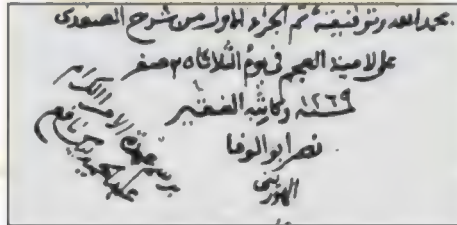 بحمد الله وتوفيقه تم الجزء الاول من شرح الصفدى
على لامية العجم فى يوم الثلاثا ٢٥ صفر
سنة ١٢٦٩ وكاتبه الفقير
نصر ابو الوفا
الهورينى
برسم حضرة الامير الكرام